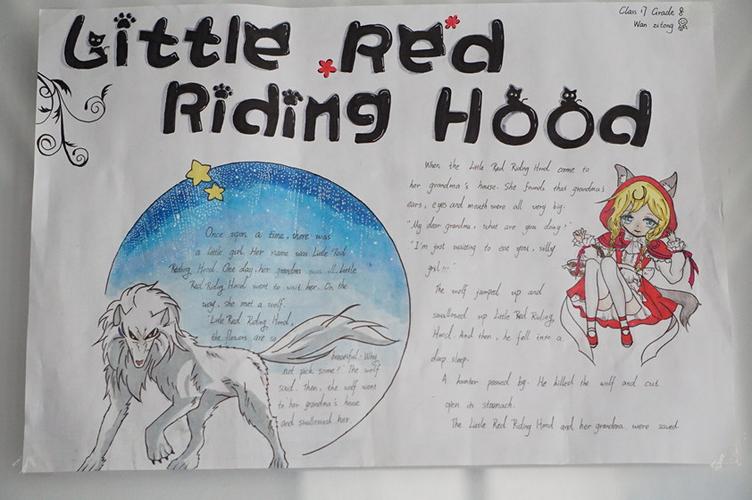 Class 17 Grade 8
Wan zitong
Little Red
Riding Hood
Once upon a time, there was
a little girl. Her name was Little Red
Riding Hood. One day, her grandma was ill. Little
Red Riding Hood went to visit her. On the
way, she met a wolf.
"Little Red Riding Hood,
the flowers are so
beautiful. Why
not pick some?" The wolf
said. Then, the wolf went
to her grandma's house
and swallowed her.
When the Little Red Riding Hood came to
her grandma's house. She founds that grandma's
ears, eyes and mouth were all very big.
"My dear grandma, what are you doing?"
"I'm just waiting to see you, silly
girl!!!"
The wolf jumped up and
swallowed up Little Red Riding
Hood. And then, he fell into a
deep sleep.
A hunter passed by. He killed the wolf and cut
open its stomach.
The Little Red Riding Hood and her grandma were saved.